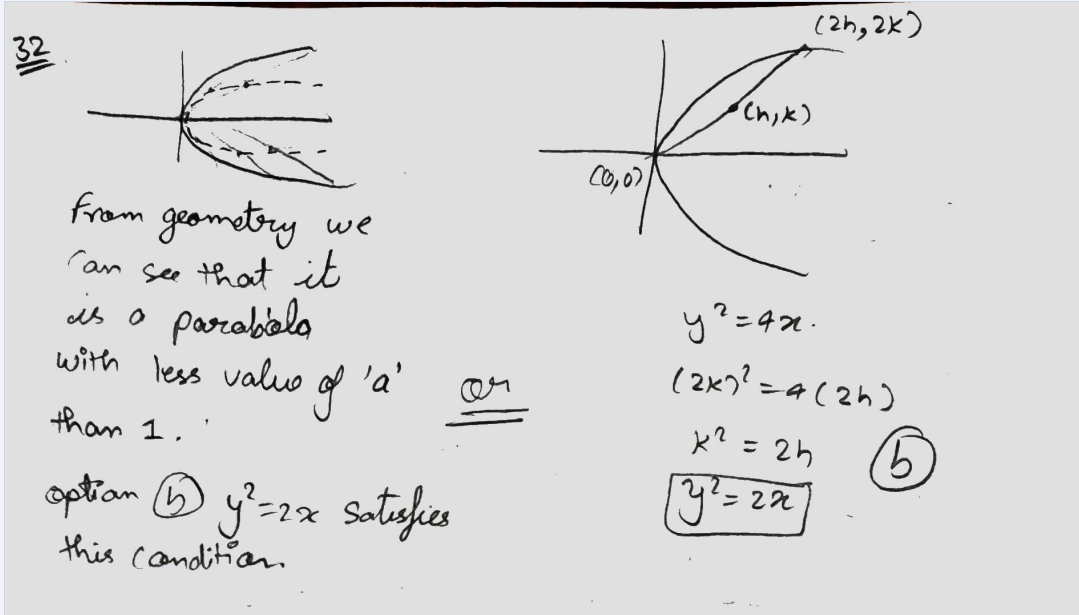 32
From geometry we
can see that it
is a parabola
with less value of 'a'
than 1.
option (b) y²=2x satisfies
this condition
or
(2h, 2k)
(h, k)
(0, 0)
y² = 4x.
(2k)² = 4(2h)
k² = 2h
y² = 2x
(b)